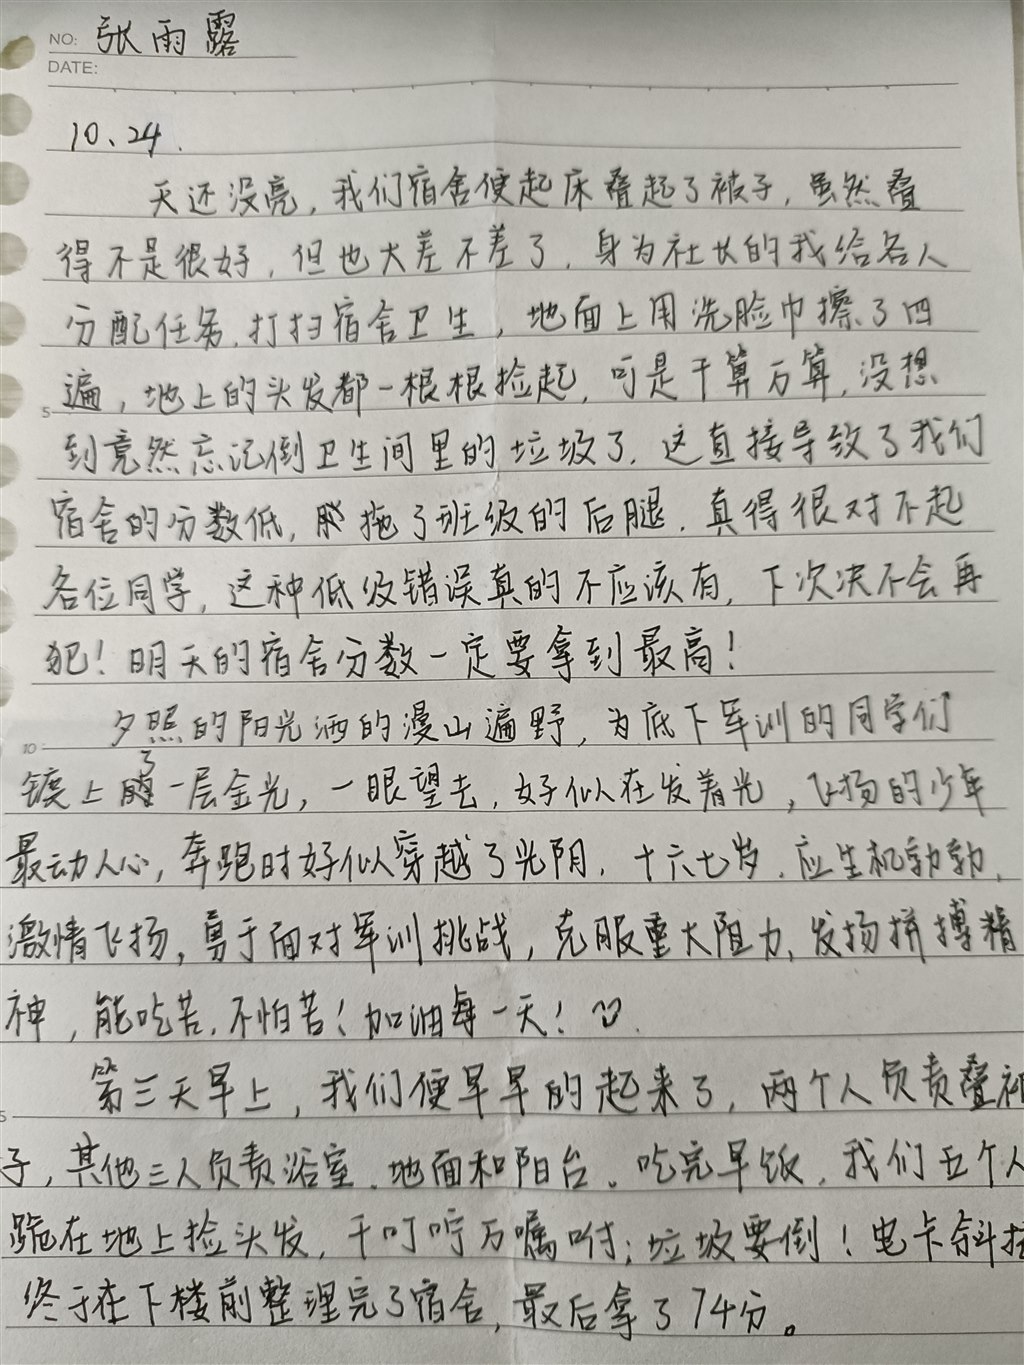 NO: 张雨露
DATE:
10、24.
天还没亮,我们宿舍便起床叠起了被子,虽然叠
得不是很好,但也大差不差了,身为社长的我给各人
分配任务,打扫宿舍卫生,地面上用洗脸巾擦了四
遍,地上的头发都一根根捡起,可是千算万算,没想
5
到竟然忘记倒卫生间里的垃圾了.这直接导致了我们
宿舍的分数低,拖了班级的后腿.真得很对不起
各位同学,这种低级错误真的不应该有,下次决不会再
犯!明天的宿舍分数一定要拿到最高!
夕照的阳光洒的漫山遍野,为底下军训的同学们
10
镀上了一层金光,一眼望去,好似在发着光,飞扬的少年
最动人心,奔跑时好似穿越了光阴.十六七岁.应生机勃勃,
激情飞扬,勇于面对军训挑战,克服重大阻力,发扬拼搏精
神,能吃苦,不怕苦!加油每一天!
第三天早上,我们便早早的起来了,两个人负责叠被
5
子,其他三人负责浴室、地面和阳台.吃完早饭,我们五个人
跪在地上捡头发,千叮咛万嘱咐:垃圾要倒!电卡
终于在下楼前整理完了宿舍,最后拿了74分。